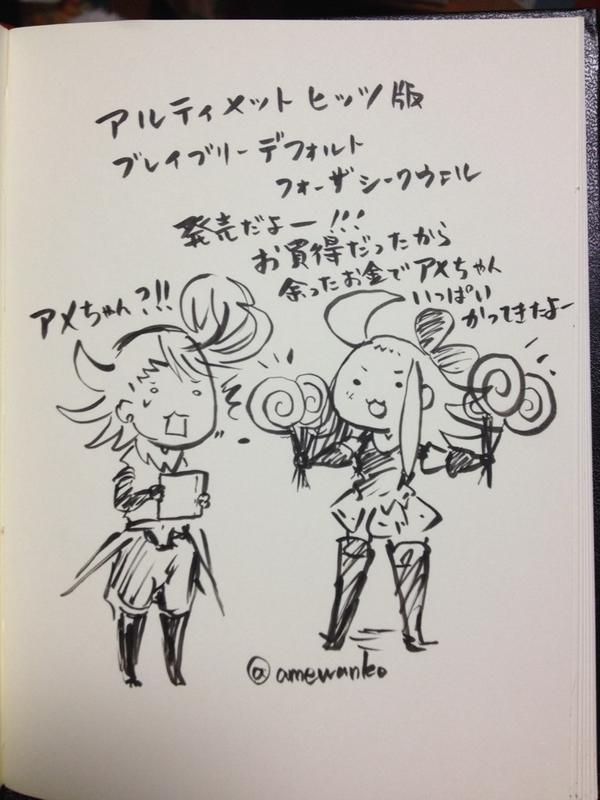 アルティメットヒッツ版
ブレイブリーデフォルト
フォーザシークウェル
発売だよー!!!
お買得だったから
余ったお金でアメちゃん
いっぱい
かってきたよー
アメちゃん?!!
@amewanko